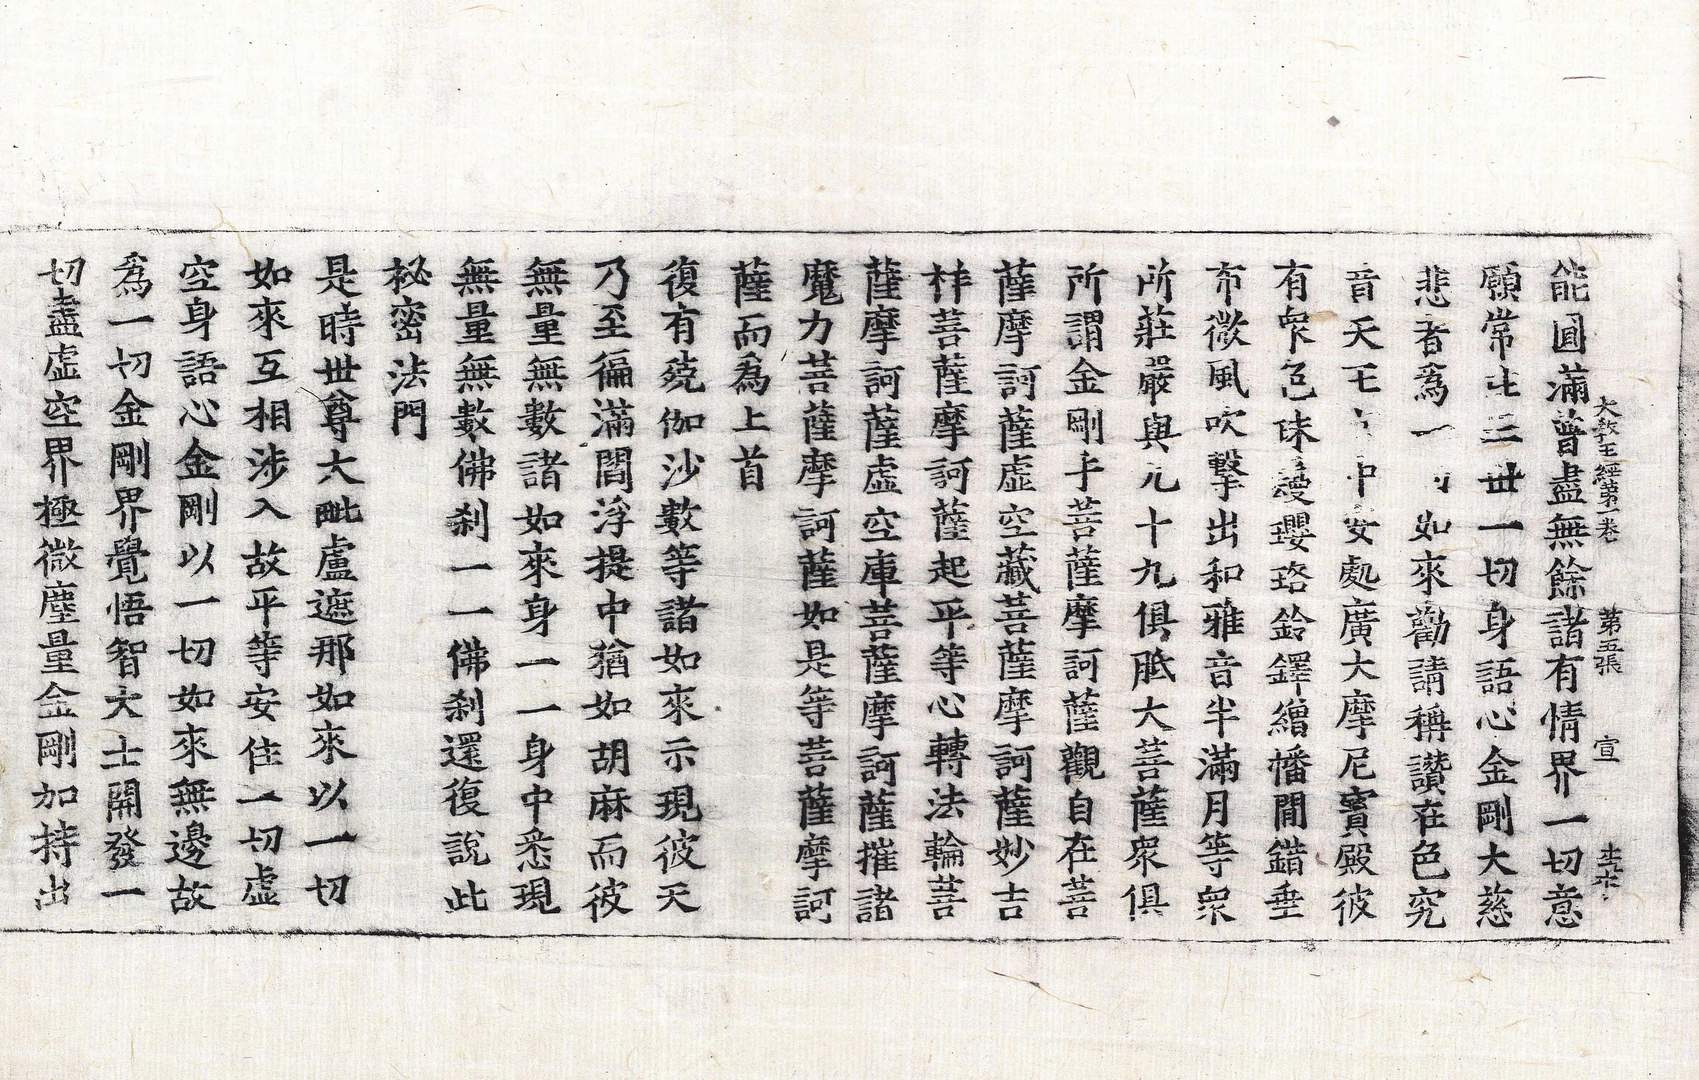 大教王經第一卷 第五張 宣
能圓滿普盡無餘諸有情界一切意
願常 三世一切身語心金剛大慈
悲者爲一 如來勸請稱讚在色究
音天王 中 處廣大摩尼寶殿彼
有衆色 瓔珞鈴鐸繒幡間錯垂
布微風吹擊出和雅音半滿月等衆
所莊嚴與九十九俱胝大菩薩衆俱
所謂金剛手菩薩摩訶薩觀自在菩
薩摩訶薩虛空藏菩薩摩訶薩妙吉
祥菩薩摩訶薩起平等心轉法輪菩
薩摩訶薩虛空庫菩薩摩訶薩摧諸
魔力菩薩摩訶薩如是等菩薩摩訶
薩而爲上首
復有兢伽沙數等諸如來示現彼天
乃至徧滿閻浮提中猶如胡麻而彼
無量無數諸如來身一一身中悉現
無量無數佛刹一一佛刹還復說此
祕密法門
是時世尊大毗盧遮那如來以一切
如來互相涉入故平等安住一切虛
空身語心金剛以一切如來無邊故
爲一切金剛界覺悟智大士開發一
切盡虛空界極微塵量金剛加持出